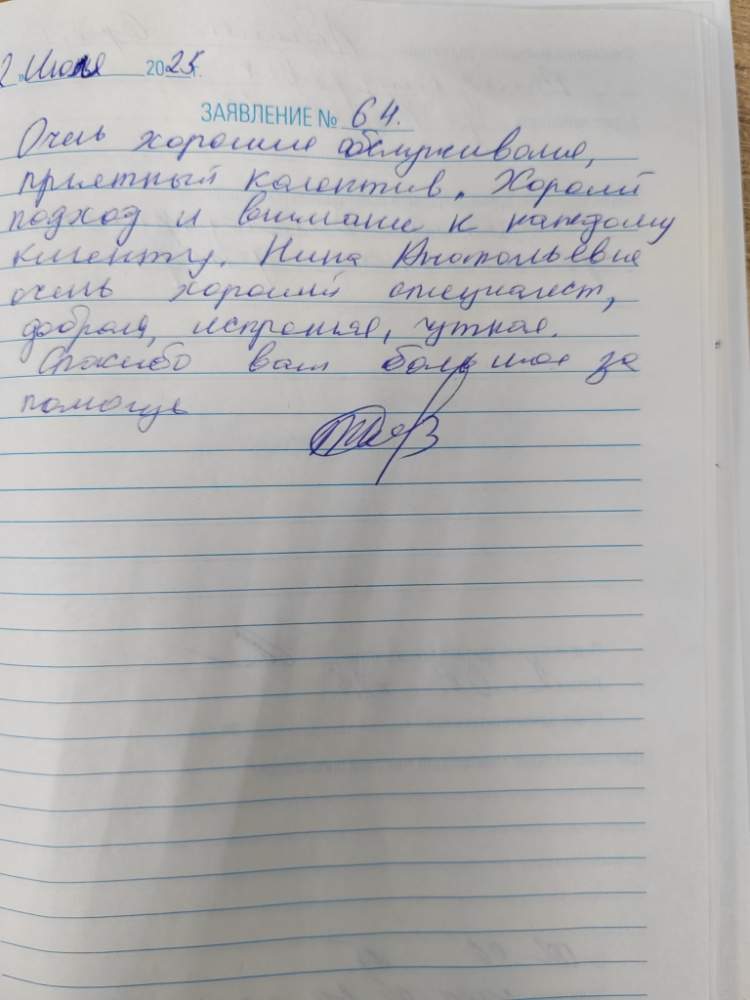 2 Июля 2025г.
ЗАЯВЛЕНИЕ № 64.
Очень хорошие обслуживание,
приятный колектив. Хороший
подход и внимание к каждому
клиенту. Нина Анатольевна
очень хороший специалист,
добрая, чуткая.
Спасибо вам большое за
помощь